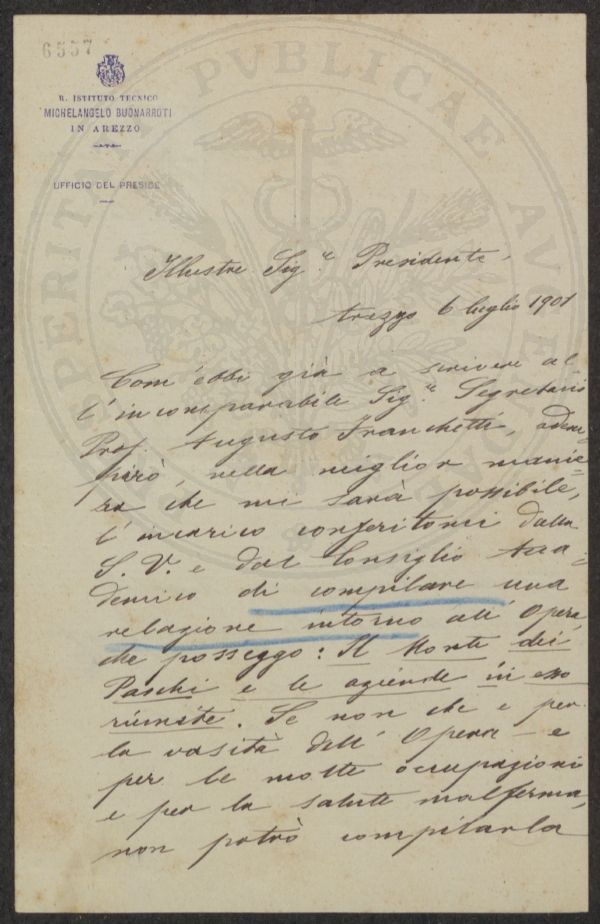 6557
R. ISTITUTO TECNICO
MICHELANGELO BUONARROTI
IN AREZZO
UFFICIO DEL PRESIDE
Illustre Sig.re Presidente,
Arezzo 6 luglio 1901
Com'ebbi già a scrivere al
l'incomparabile Sig.re Segretario
Prof. Augusto Franchetti, adem=
pirò, nella miglior manie=
ra che mi sarà possibile,
l'incarico conferitomi dalla
S. V. e dal Consiglio Acca=
demico di compilare una
relazione intorno all'Opera,
che posseggo: Il Monte dei
Paschi e le aziende in esso
riunite. Se non che e per
la vastità dell'Opera e
per le molte occupazioni
e per la salute malferma,
non potrò compilarla